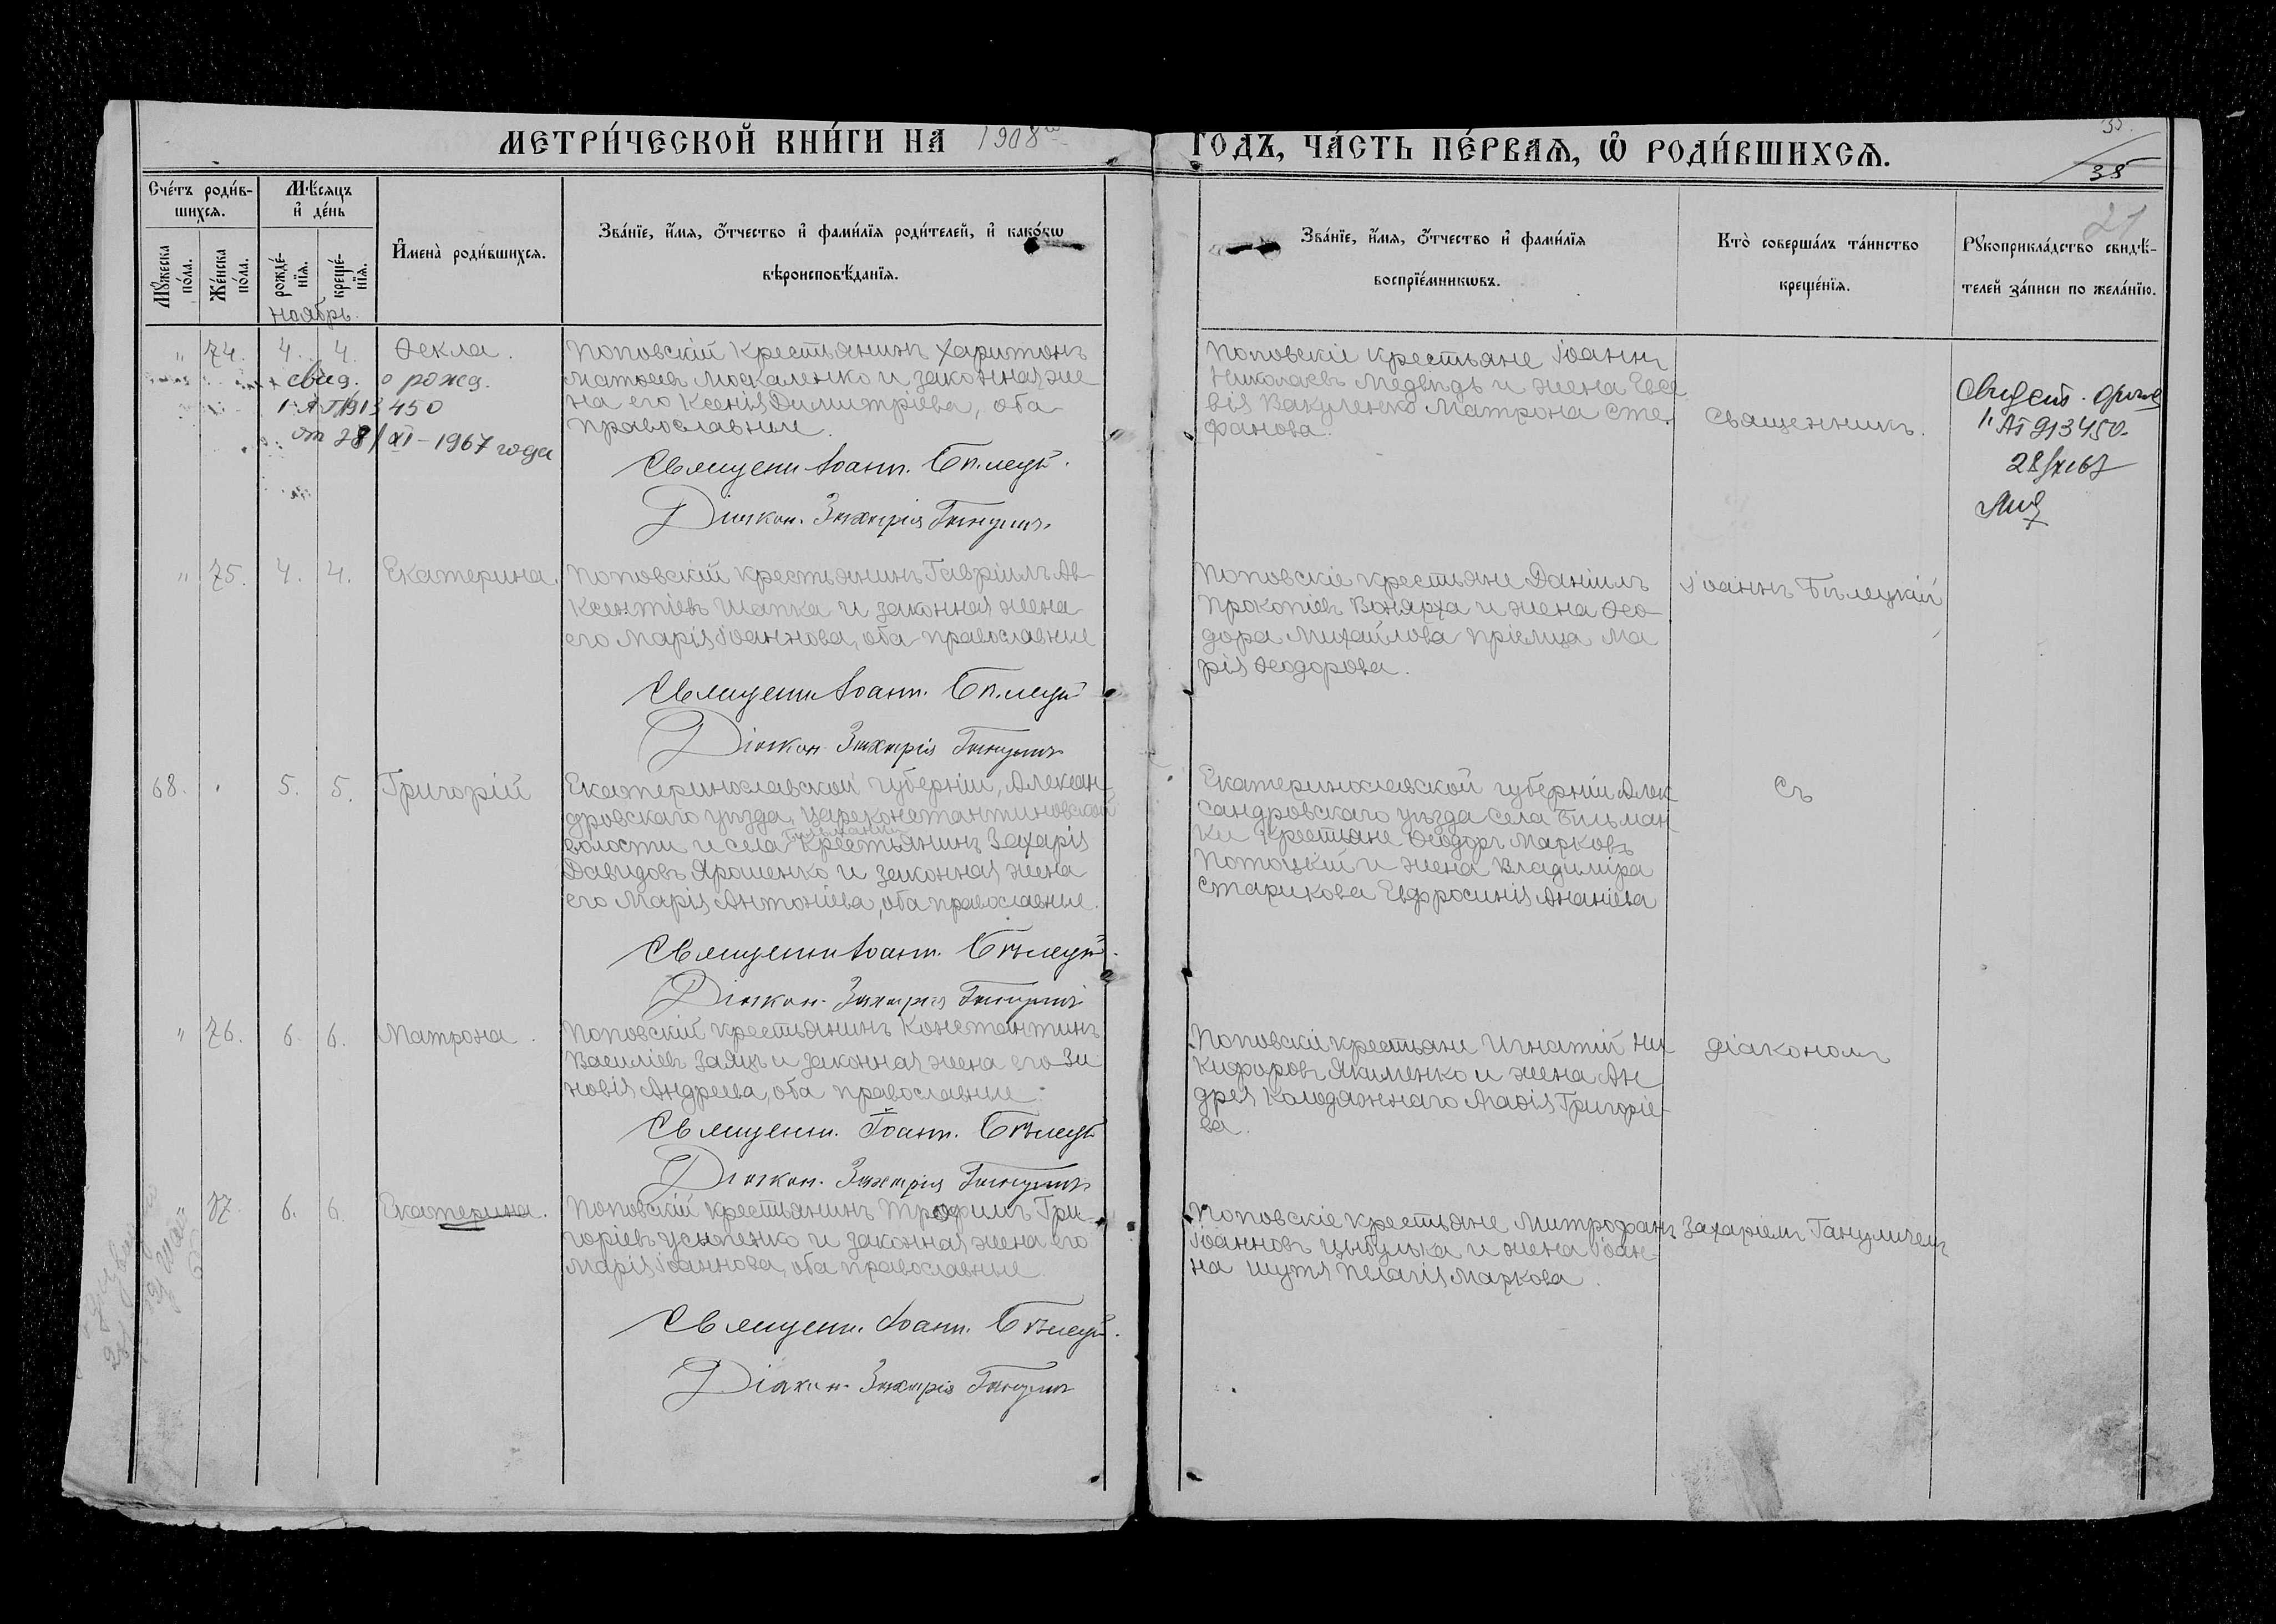 МЕТРИ́ЧЕСКОЙ КНИ́ГИ НА 1908 ГОДЪ, ЧА́СТЬ ПЕ́РВАЯ, Ѡ РОДИ́ВШИХСЯ.
35
38
21
Сче́тъ роди́в-
шихся.
Мѣ́сяцъ
и҆ де́нь
Мꙋ́жеска
по́ла.
Же́нска
по́ла.
рожде́-
нїя.
креще́-
нїя.
И҆мена̀ роди́вшихся.
Зва́нїе, и҆́мя, ѻ҆́тчество и҆ фами́лїя роди́телей, и҆ како́гѡ
вѣроисповѣ́данїя.
Зва́нїе, и҆́мя, ѻ҆́тчество и҆ фами́лїя
воспрїе́мникѡвъ.
Кто̀ соверша́лъ та́инство
креще́нїя.
Рꙋкоприкла́дство свидѣ́-
телей за́писи по жела́нїю.
ноябрь
" 74. 4. 4. Ѳекла.
свид. о рожд.
I АП 913450
от 28/XI-1967 года
Поповскій крестьянинъ Харитонъ
Матѳеевъ Москаленко и законная же
на его Ксенія Димитріева, оба
православные.
Священ. Іоанн. Бѣлецк.
Діакон. Захарія Ганулич.
Поповскіе крестьяне Іоаннъ
Николаевъ Медвѣдь и жена Евсе
вія Вакуленко Матрона Сте-
фанова.
Священникъ.
913450
" 75. 4. 4. Екатерина.
Поповскій крестьянинъ Гавріилъ Ав-
ксентіевъ Шапка и законная жена
его Марія Іоаннова, оба православные
Священ. Іоанн. Бѣлецк.
Діакон. Захарія Ганулич.
Поповскіе крестьяне Даніилъ
Прокопіевъ Вонярха и жена Ѳео-
дора Михайлова Пріемца Ма
рія Ѳеодорова.
Іоаннъ Бѣлецкій
68. " 5. 5. Григорій
Екатеринославской губерніи, Алексан-
дровскаго уѣзда, Цареконстантиновской
волости и села Бильманки крестьянинъ Захарія
Давидовъ Ярошенко и законная жена
его Марія Антоніева, оба православные.
Священ. Іоанн. Бѣлецк.
Діакон. Захарія Ганулич.
Екатеринославской губерніи Алек
сандровскаго уѣзда села Бильман-
ки крестьяне Ѳеодоръ Марковъ
Потоцкій и жена Владиміра
Старикова Евфросинія Ананіева
Съ
" 76. 6. 6. Матрона.
Поповскій крестьянинъ Константинъ
Василіевъ Заяцъ и законная жена его Зи
новія Андреева, оба православные.
Священ. Іоанн. Бѣлецк.
Діакон. Захарія Ганулич.
Поповскіе крестьяне Игнатій Ни
кифоровъ Якименко и жена Ан
дрея Колодяжнаго Марія Григоріе-
ва.
діакономъ
" 77. 6. 6. Екатерина.
Поповскій крестьянинъ Трофимъ Гри-
горіевъ Усыпенко и законная жена его
Марія Іоаннова, оба православные.
Священ. Іоанн. Бѣлецк.
Діакон. Захарія Ганулич.
Поповскіе крестьяне Митрофанъ
Іоанновъ Цыбулька и жена Іоан-
на Шутя Пелагія Маркова.
Захаріемъ Ганиличемъ